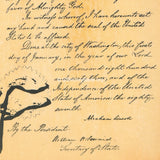 favor of Almighty God.
In witness whereof I have hereunto set
my hand and caused the seal of the United
States to be affixed.
Done at the city of Washington, this first
day of January, in the year of our Lord
one thousand eight hundred
and sixty three, and of the
Independence of the United
States of America the eighty-
seventh.
Abraham Lincoln
By the President:
William H. Seward
Secretary of State